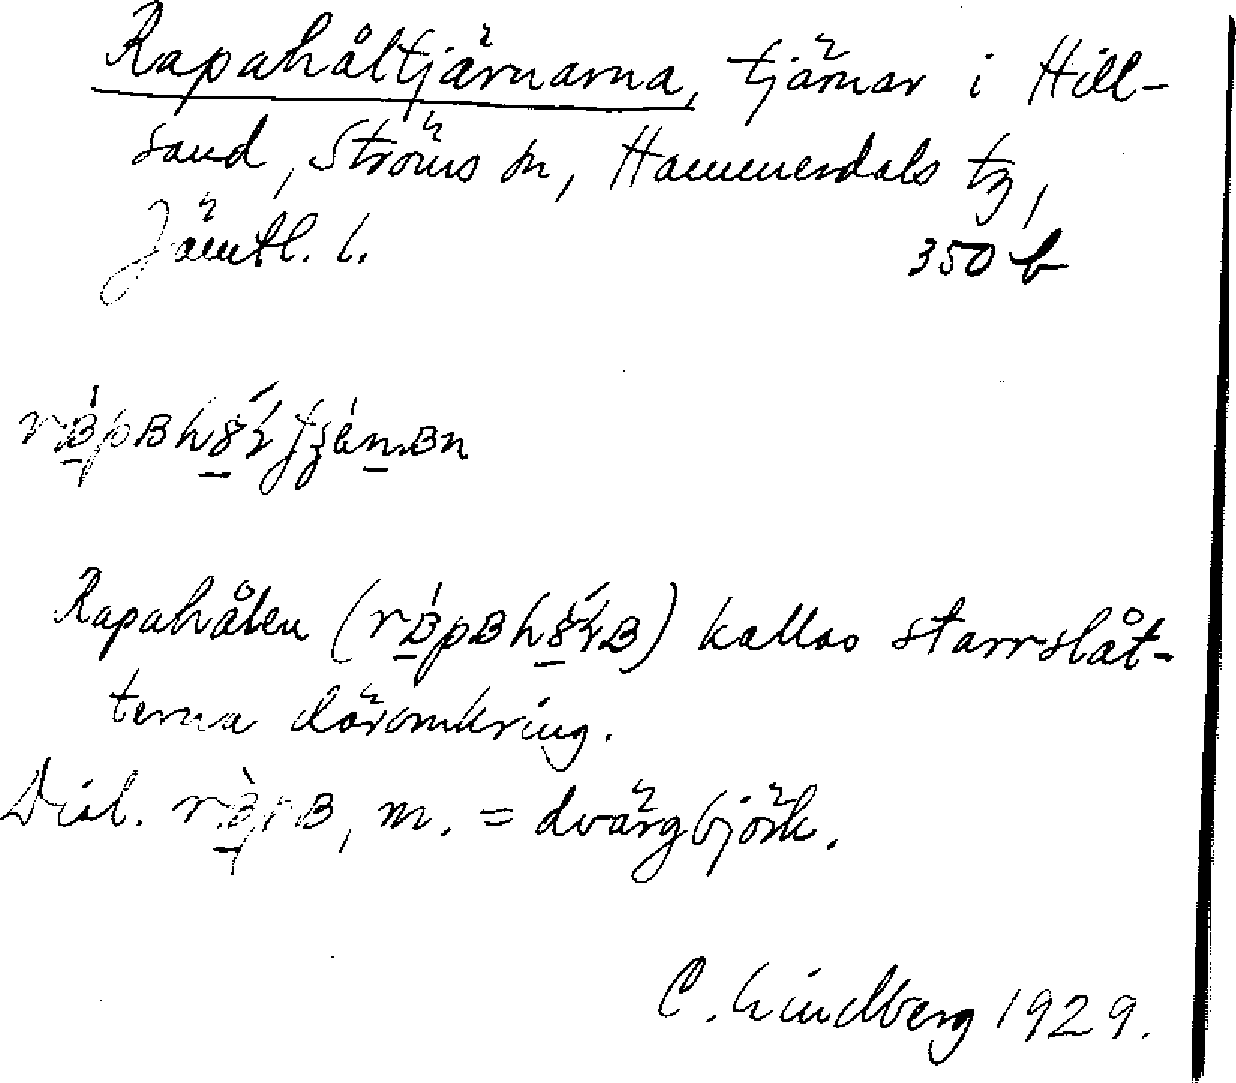 Rapahåltjärnarna, tjärnar i Hill-
sand, Ströms sn, Hammerdals tg,
Jämtl. l.
350 b
Rapahålen kallas starrslåt-
terna däromkring.
Dial. m. = dvärgbjörk.
C. Lindberg 1929.